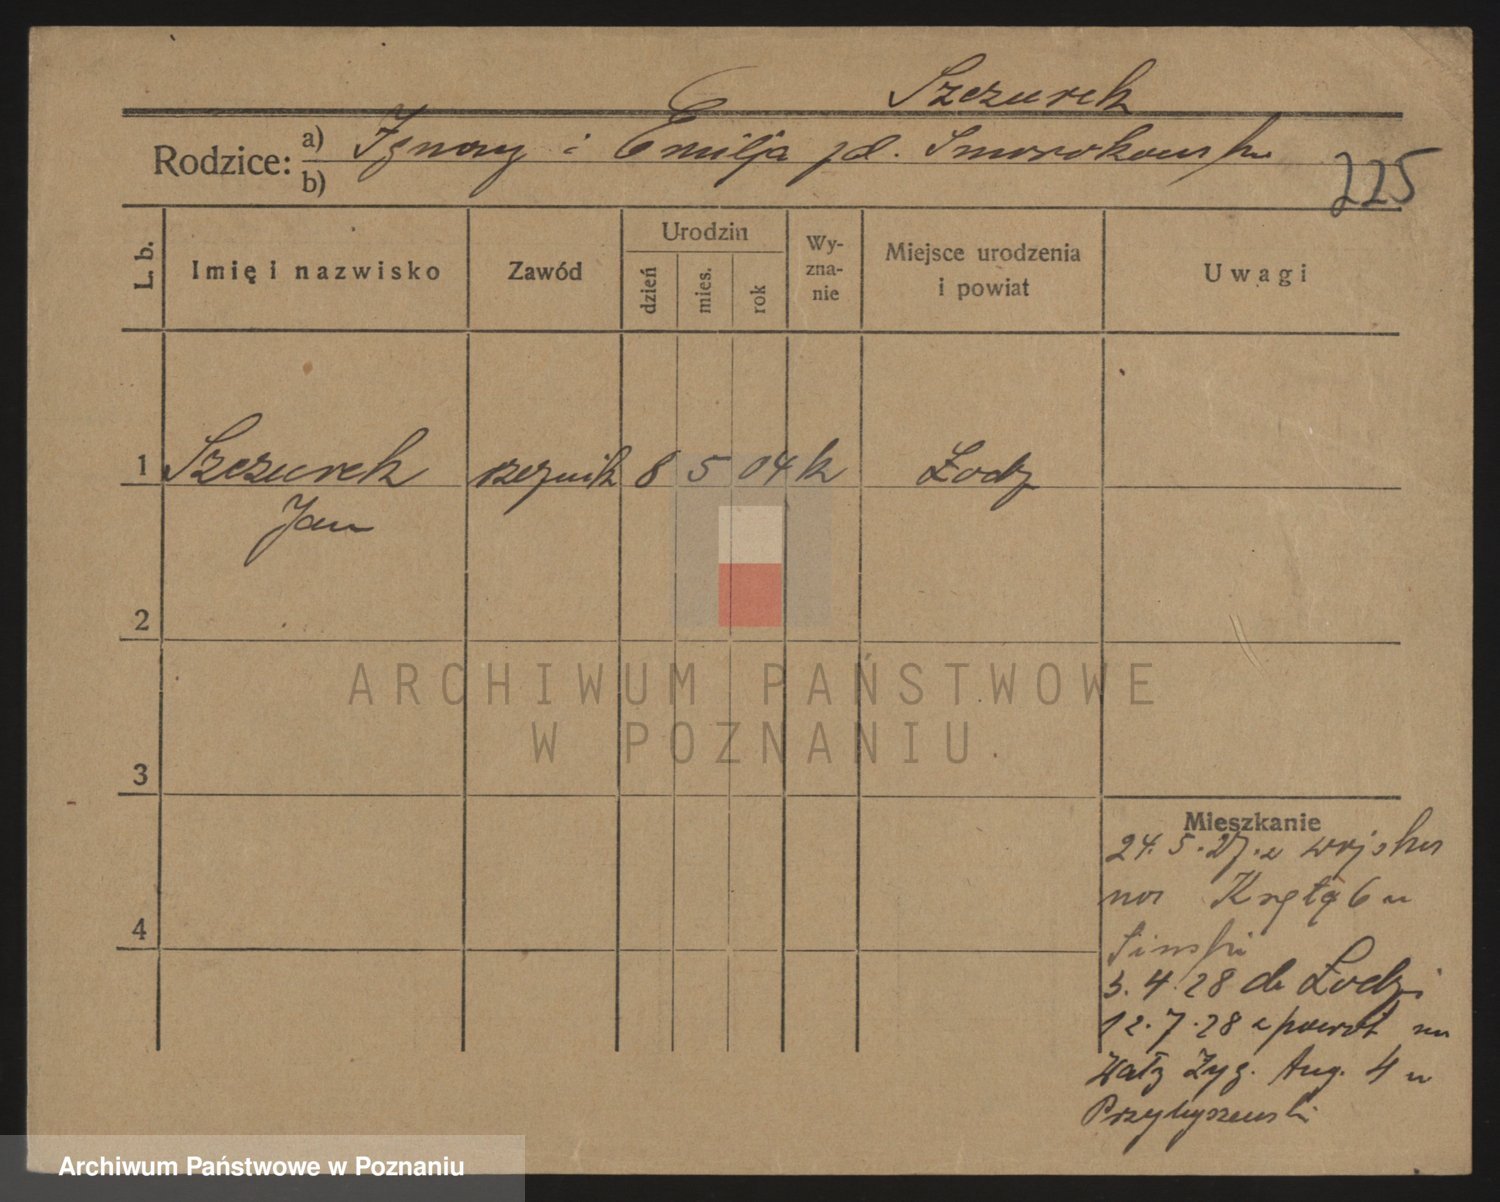 Szczurek
Rodzice: a) Ignacy i Emilja zd. Smorokowska
b)
225
L. b.
Imię i nazwisko
Zawód
Urodzin
dzień
mies.
rok
Wy-
zna-
nie
Miejsce urodzenia
i powiat
Uwagi
1 Szczurek rzeznik 8 5 04 k Łodz
Jan
2
ARCHIWUM PAŃSTWOWE
W POZNANIU
3
Mieszkanie
24. 5. 27. z wojska
na Krętą 6 u
4
3. 4. 28 do Łodzi
12. 7. 28 z powrot na
Wały Zyg. Aug. 4 u
Przybyszewski
Archiwum Państwowe w Poznaniu